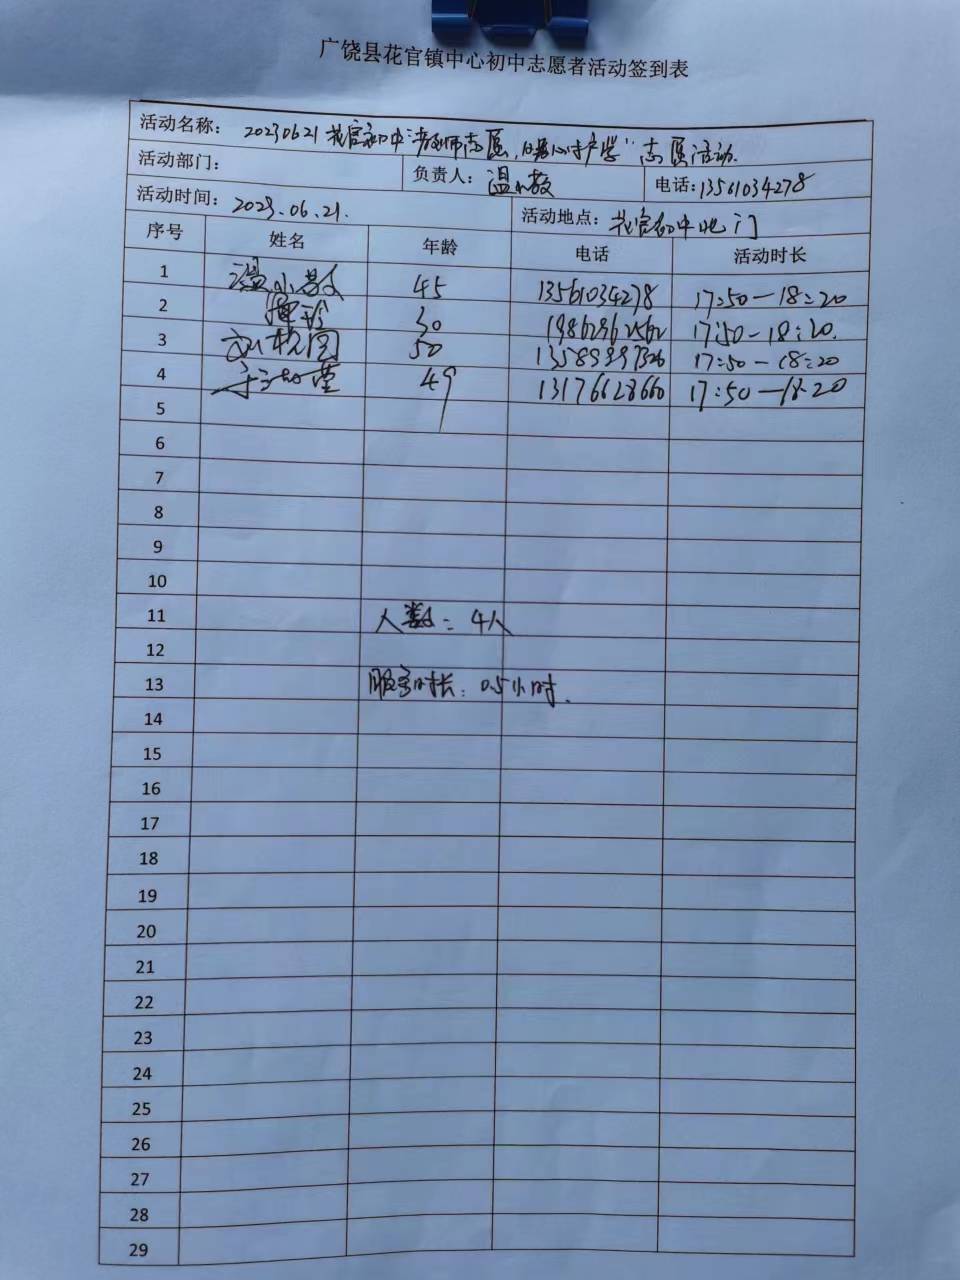 广饶县花官镇中心初中志愿者活动签到表
活动名称: 20230621花官初中"教师志愿,心守护学"志愿活动.
活动部门: 负责人: 温小教 电话: 13561034278
活动时间: 2023.06.21. 活动地点: 花官初中北门
序号 姓名 年龄 电话 活动时长
1 温小教 45 13561034278 17:50-18:20
2 30 17:50-18:20.
3 50 17:50-18:20
4 49 13176628660 17:50-18:20
5
6
7
8
9
10
11 人数: 4人
12
13 服务时长: 0.5小时.
14
15
16
17
18
19
20
21
22
23
24
25
26
27
28
29